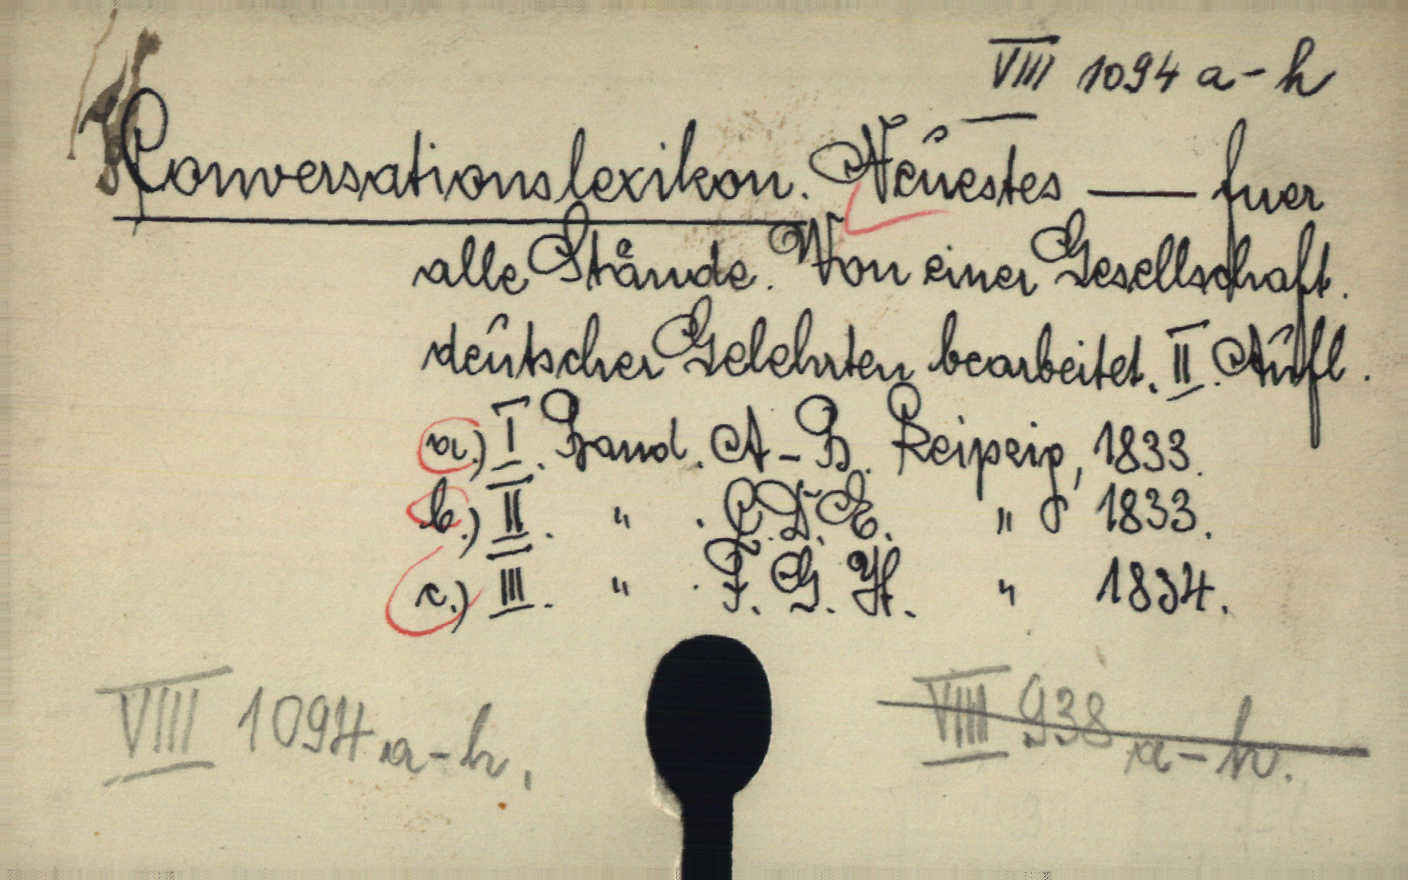 VIII 1094 a-h
Conversationslexikon. Neuestes — fuer
alle Stände. Von einer Gesellschaft.
deutscher Gelehrten bearbeitet. II. Aufl.
a.) I. Band. A-B. Leipzig, 1833.
b.) II. " . C.D.E. " 1833.
c.) III. " . F. G. H. " 1834.
VIII 1094 a-h.
VIIII 938 a-h.